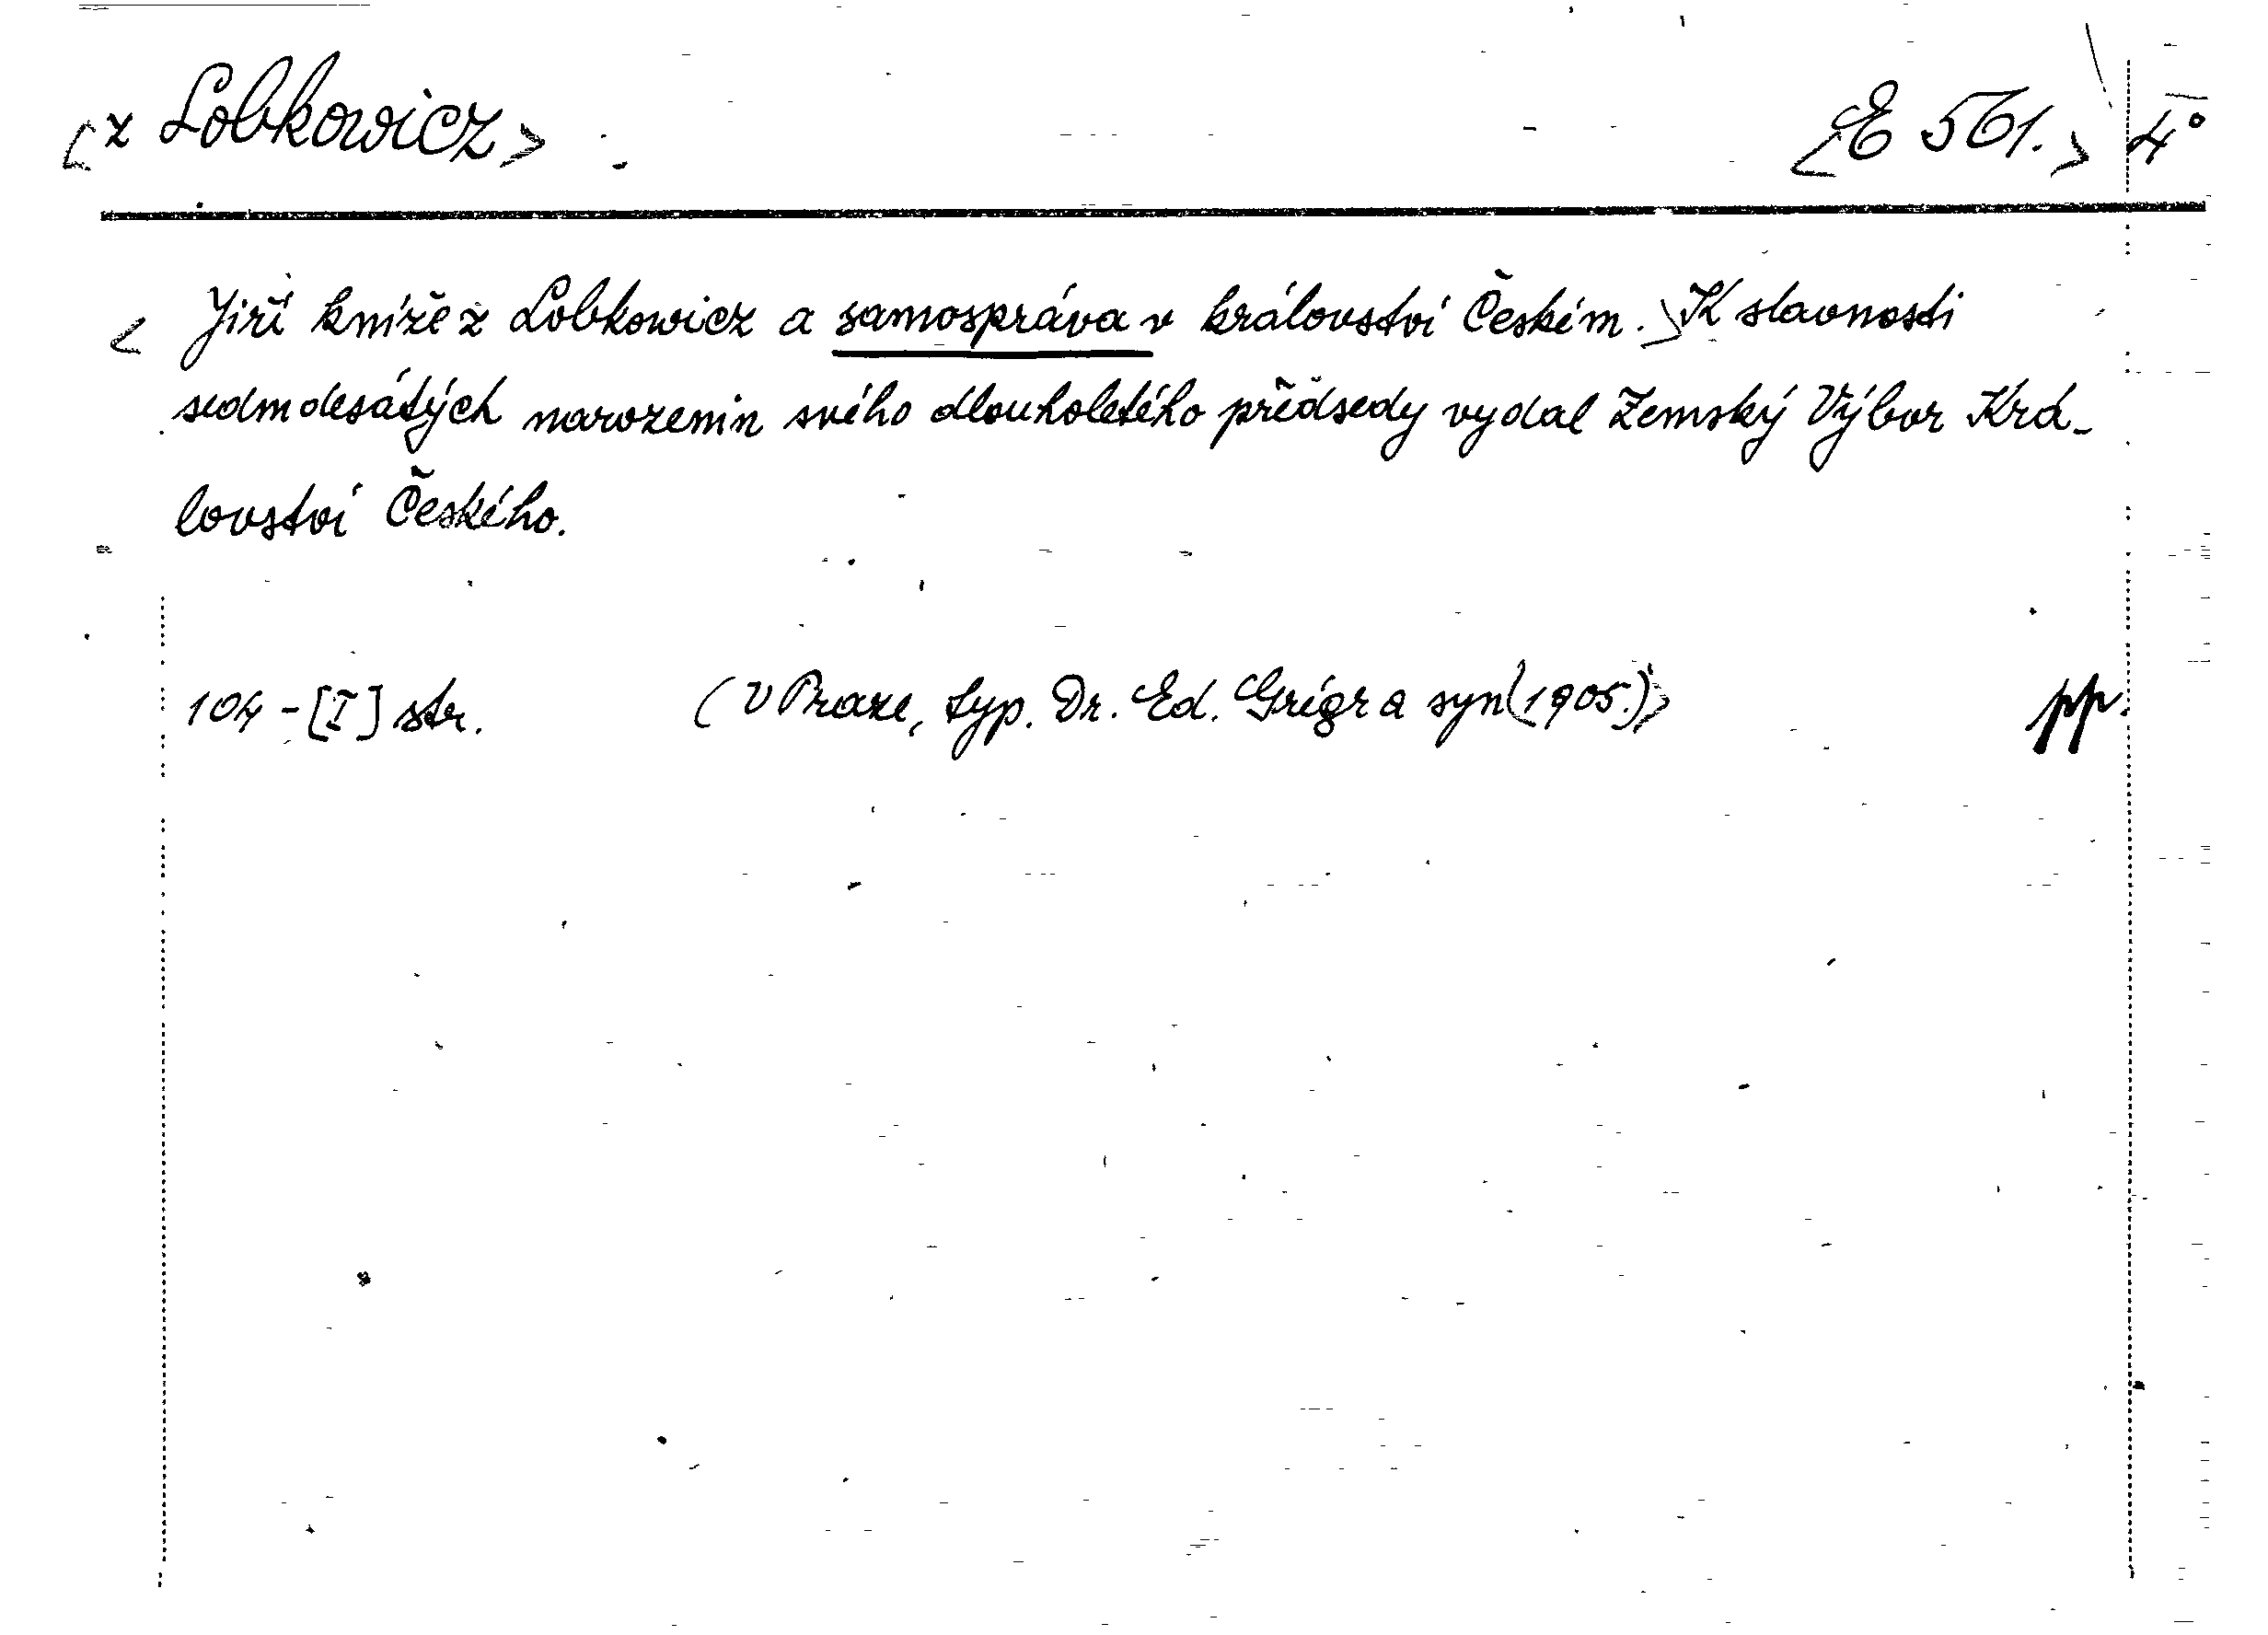 <z Lobkowicz> <E 561.> 4°
<Jiří kníže z Lobkowicz a samospráva v království Českém.> K slavnosti
sedmdesátých narozenin svého dlouholetého předsedy vydal Zemský Výbor Krá-
lovství Českého.
104-[I] str. (V Praze, typ. Dr. Ed. Grégr a syn (1905.)> pp.